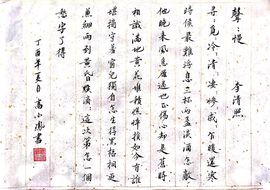 聲〻慢 李清照
尋〻覓〻冷〻清〻凄〻慘〻戚〻乍暖還寒
時候最難將息三杯兩盞淡酒怎敵
他晚來風急雁過也正傷心卻是舊時
相識滿地黃花堆積憔悴損如今有誰
堪摘守著窗兒獨自怎生得黑梧桐更
兼細雨到黃昏點滴〻這次第怎一個
愁字了得
丁酉年夏日高小鳳書